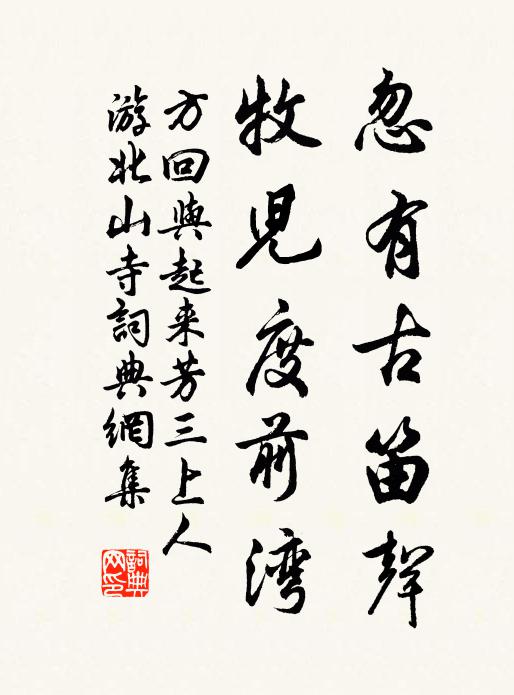 忽有古笛聲
牧児度前湾
方回與起来芳三上人
游北山寺詞典網集
詞典網印